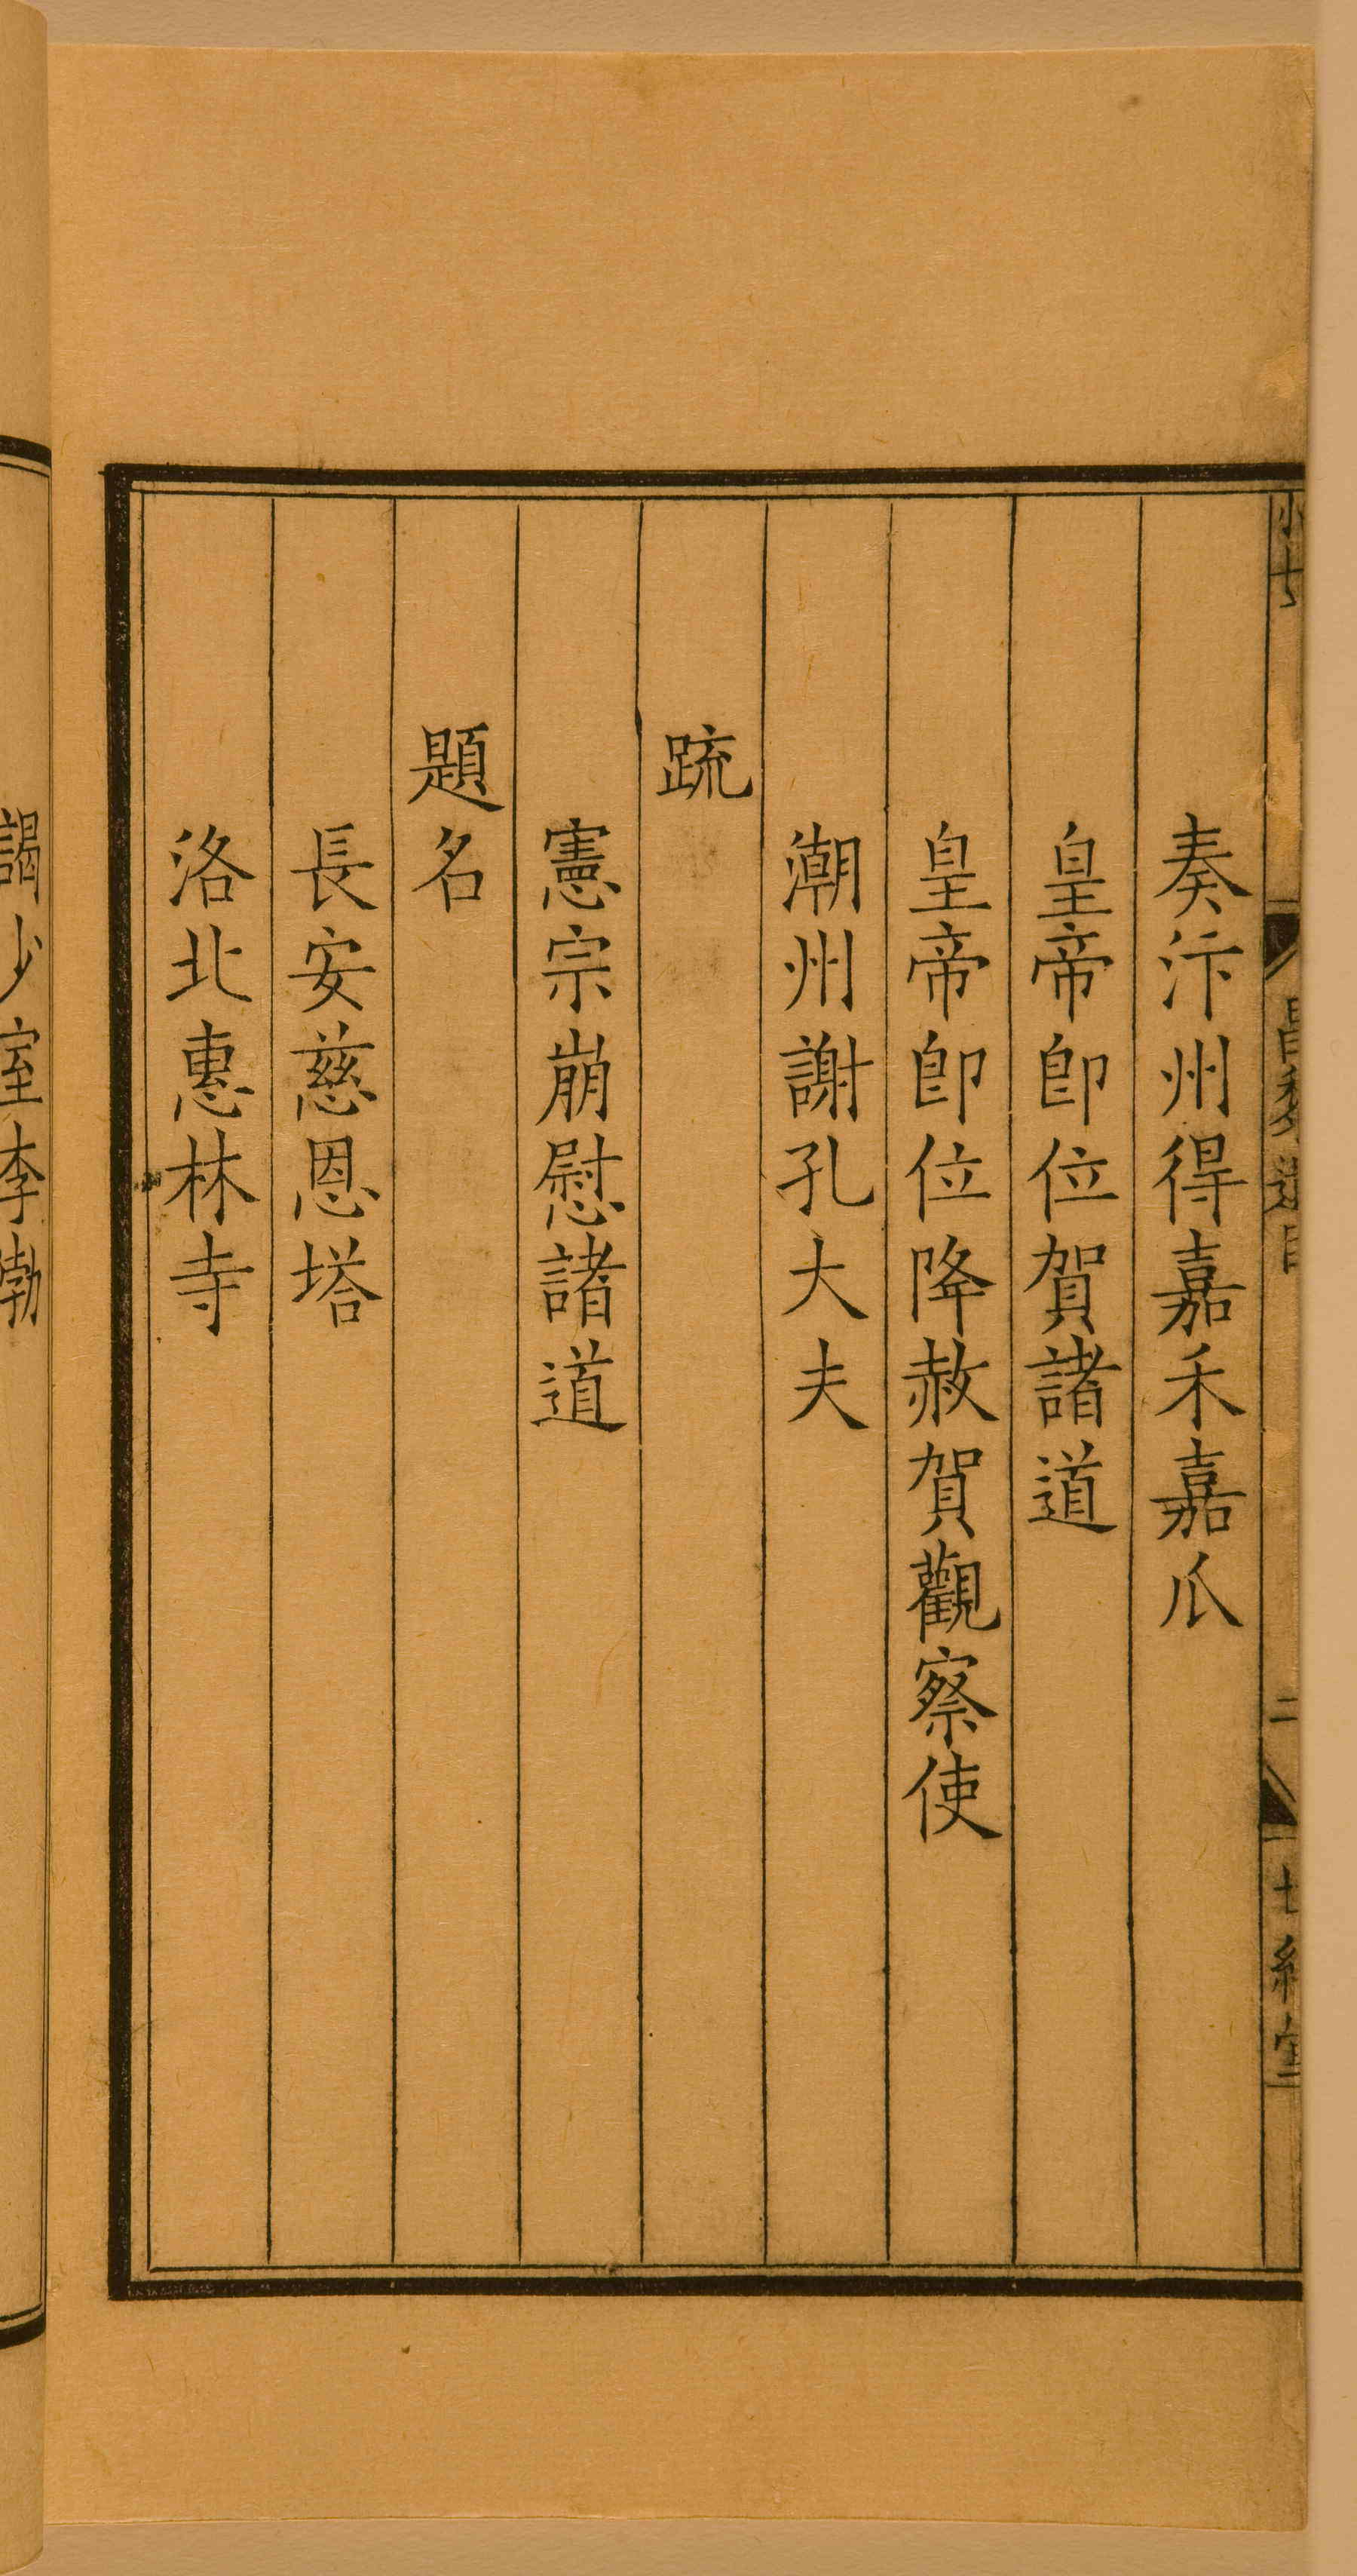 奏汴州得嘉禾嘉瓜
皇帝卽位賀諸道
皇帝卽位降赦賀觀察使
潮州謝孔大夫
䟽
憲宗崩慰諸道
題名
長安慈恩塔
洛北惠林寺
謁少室李渤